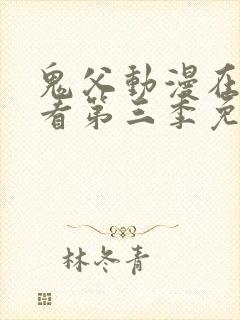 鬼父動漫在
看第三季免
林冬青